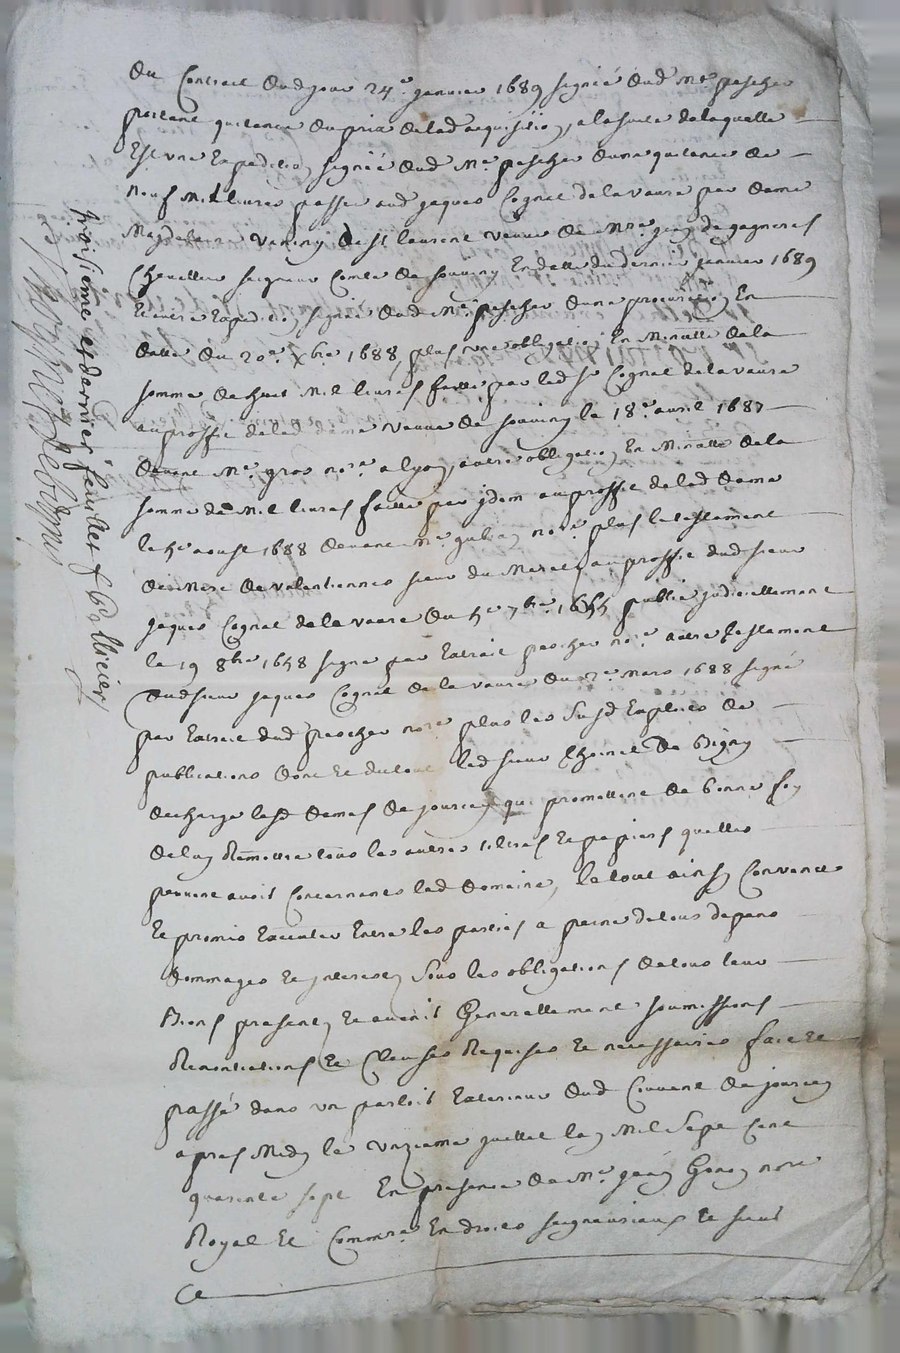 du Contract dud jour 24e janvier 1689 signé dud Me pescher
portant quittance du prix de lad acquisition, a la suite de laquelle
Est une Expedition signée dud Me pescher dune quittance de
Neuf Mil livres passée aud jaques Cognet de la vaure par dame
Magdelaine de St laurent veuve de Mre jean de gagneres
Chevallier seigneur Comte de souvigny En datte du dernier janvier 1689
Expedition signée dud Me pescher dune procuration En
datte du 20e Xbre 1688, plus une obligation En Minutte de la
somme de huit Mil livres faitte par led Sr Cognet de la vaure
au proffit de lad dame veuve de souvigny le 18e avril 1687
devant Me gros nore a lyon, autre obligation En Minutte de la
somme de Mil livres faitte par jdem au proffit de lad dame
le 5e aoust 1688 devant Me nore plus le testament
de de valentiennes sieur du au proffit dud sieur
jaques Cognet de la vaure du 5e 7bre 1655 publié judiciellement
le 19 8bre 1658 signé par Extrait pescher nore autre testament
dud sieur jaques Cognet de la vaure du 2e Mars 1688 signé
par Extrait dud pescher nore plus les susd Exploits de
publications dont Et du tout led sieur Choinet de Bigny
decharge lesd dames de joursey qui promettent de bonne foy
de luy Remettre tous les autres titres Et papiers quelles
peuvent avoir Concernants led domaine, le tout ainsy Convenu
Et promis Executer Entre les parties a peine de tous depans
dommages Et jnterests, sous les obligations de tous leur
Biens presents Et avenir Generallement soumissions
Renontiations Et Clauses Requises Et necessaires fait Et
passé dans un parloir Exterieur dud Couvent de joursey
apres Midy le unzieme juillet lan Mil sept cent
quarente sept En presence de Me jean nore
Royal Et Commre En droits seigneuriaux Et sieur
troisieme et dernier feuillet
Choinet De bigny